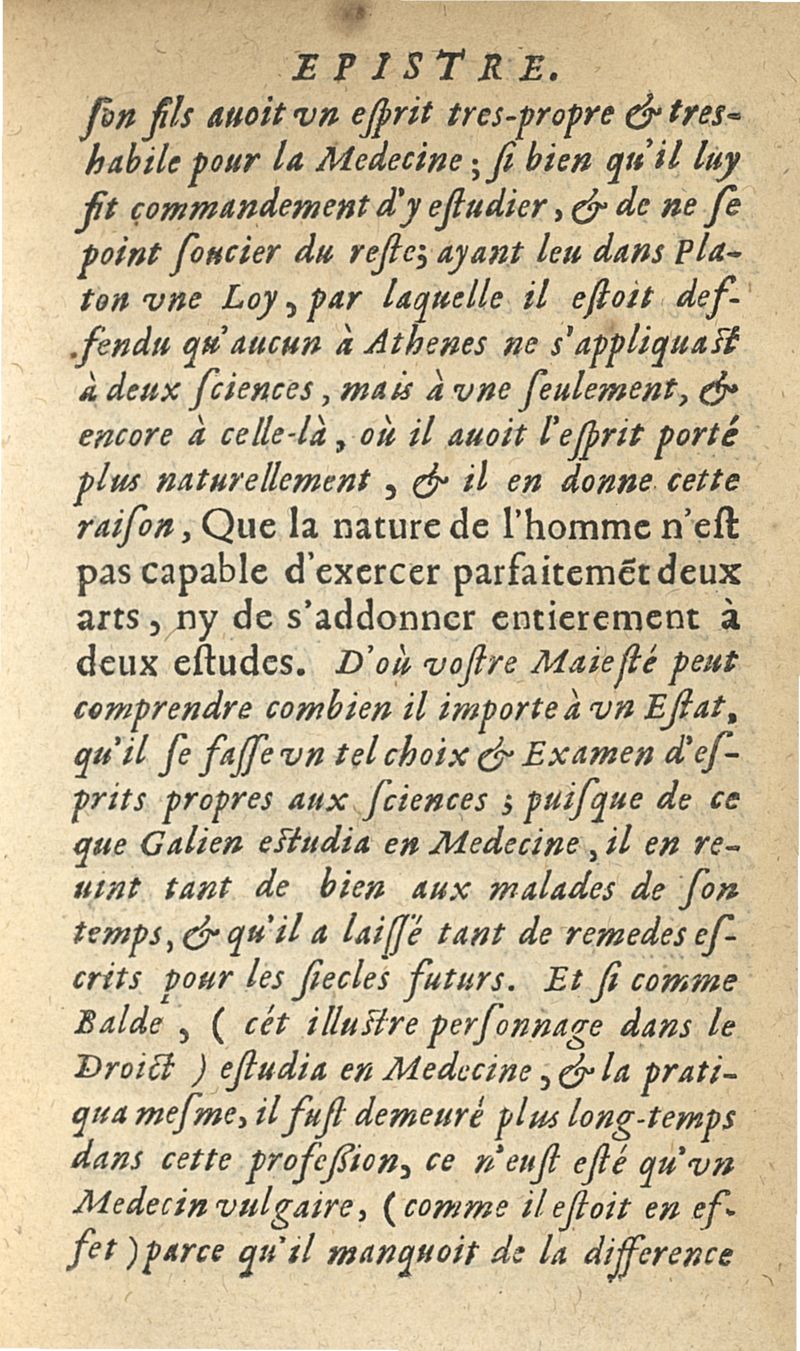 EPISTRE.
ſon fils auoit vn eſprit tres-propre & tres-
habile pour la Medecine; ſi bien qu'il luy
fit commandement d'y eſtudier, & de ne ſe
point ſoucier du reſte; ayant leu dans Pla-
ton vne Loy, par laquelle il eſtoit def-
fendu qu'aucun à Athenes ne s'appliquaſt
à deux ſciences, mais à vne ſeulement, &
encore à celle-là, où il auoit l'eſprit porté
plus naturellement, & il en donne cette
raiſon, Que la nature de l'homme n'eſt
pas capable d'exercer parfaitemẽt deux
arts, ny de s'addonner entierement à
deux eſtudes. D'où voſtre Maieſté peut
comprendre combien il importe à vn Eſtat,
qu'il ſe faſſe vn tel choix & Examen d'eſ-
prits propres aux ſciences; puiſque de ce
que Galien eſtudia en Medecine, il en re-
uint tant de bien aux malades de ſon
temps, & qu'il a laiſſé tant de remedes eſ-
crits pour les ſiecles futurs. Et ſi comme
Balde, (cét illuſtre perſonnage dans le
Droict) eſtudia en Medecine, & la prati-
qua meſme, il fuſt demeuré plus long-temps
dans cette profeßion, ce n'euſt eſté qu'vn
Medecin vulgaire, (comme il eſtoit en ef-
fet) parce qu'il manquoit de la difference